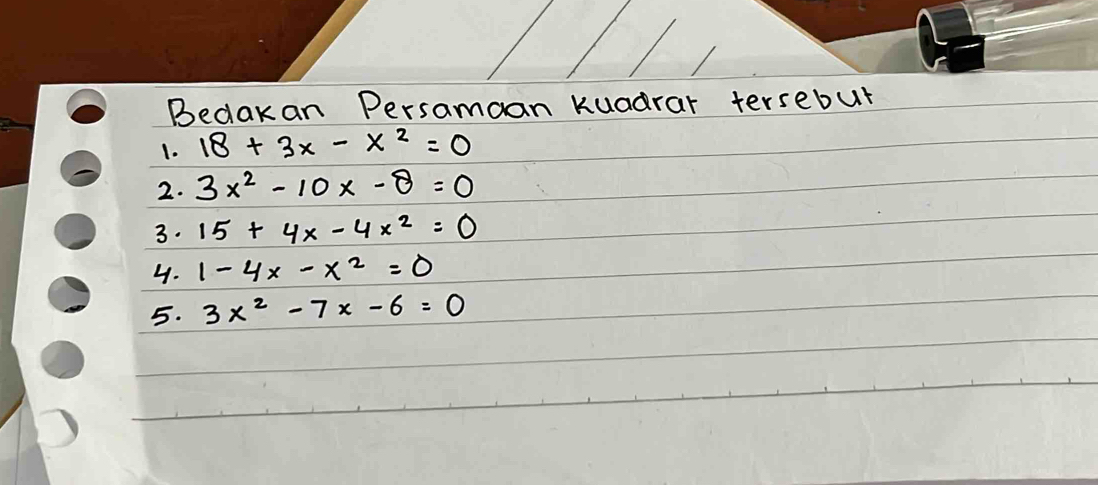 Bedakan Persamaan Kuadrat tersebut
1. 18 + 3x - x² = 0
2. 3x² - 10x - 8 = 0
3. 15 + 4x - 4x² = 0
4. 1 - 4x - x² = 0
5. 3x² - 7x - 6 = 0